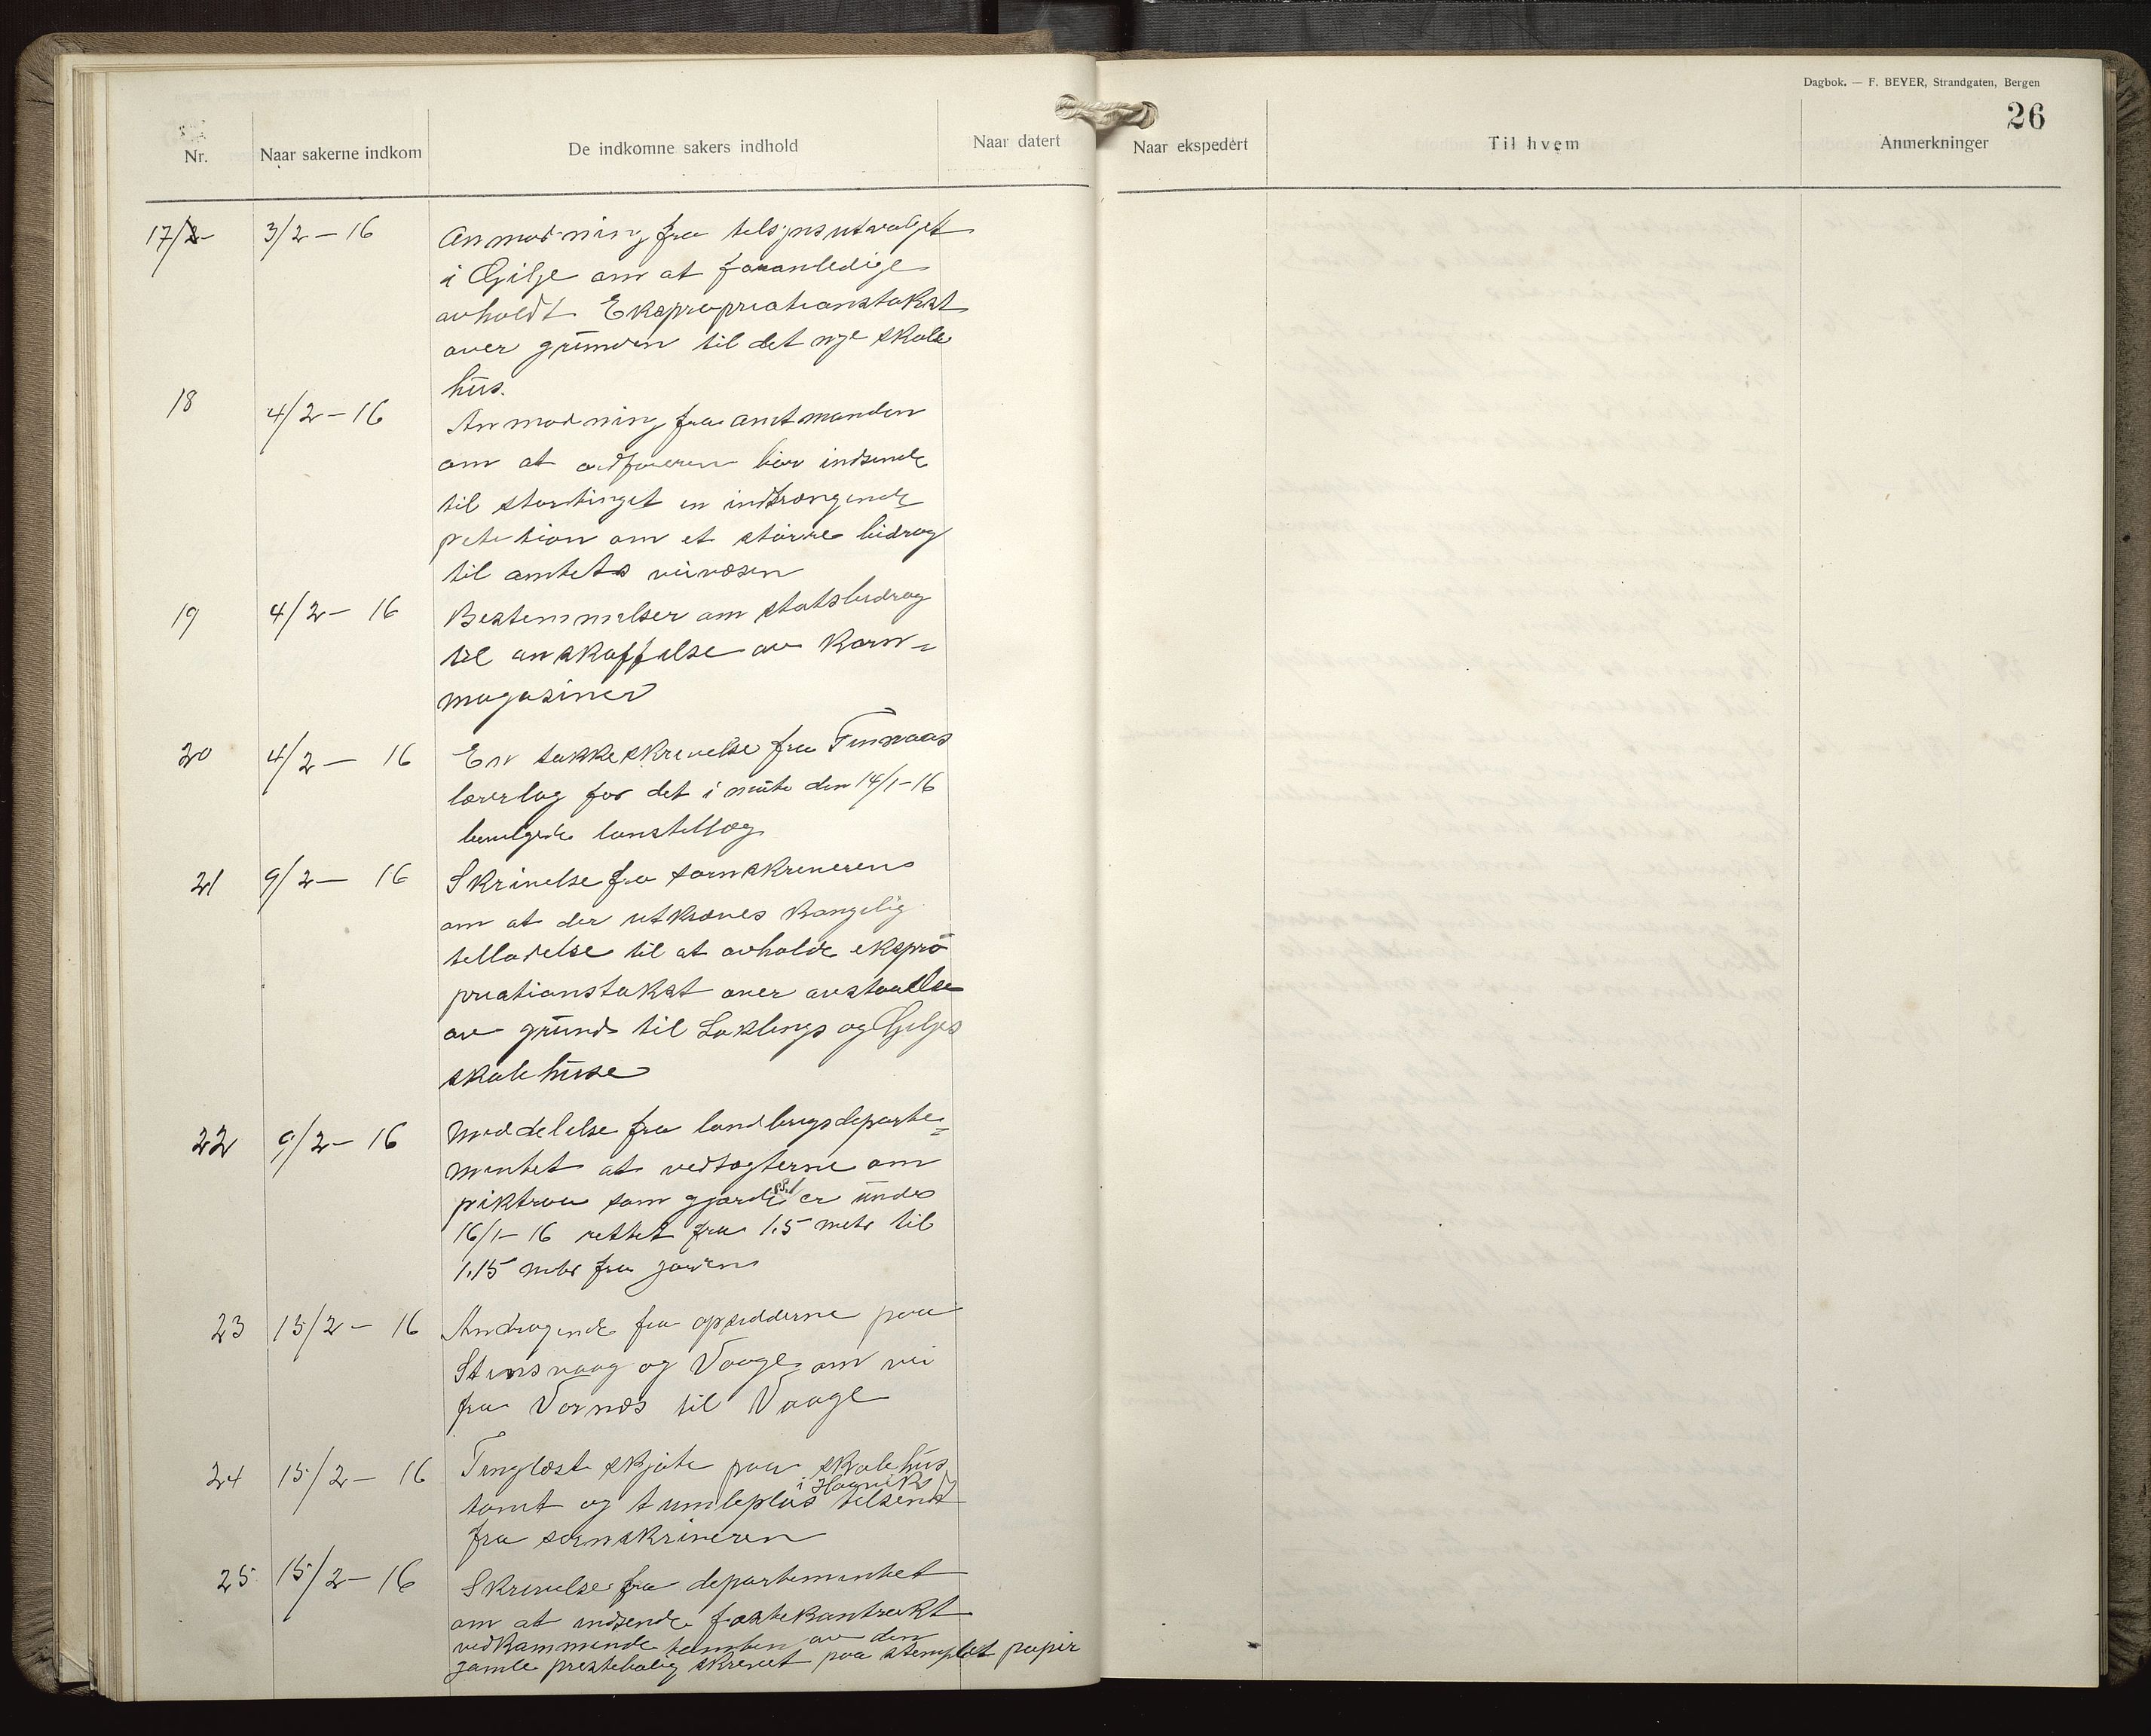 Dagbok. — F. BEYER, Strandgaten, Bergen
26
Nr. Naar sakerne indkom De indkomne sakers indhold Naar datert Naar ekspedert Til hvem Anmerkninger
17/2 3/2 – 16 Anmodning fra tilsynsutvalget
i Gilje om at foranledige
avholdt Ekspropriationstakst
over grunden til det nye skole
hus.
18 4/2 – 16 Anmodning fra amtmanden
om at ordføreren bør indsende
til stortinget en indtrængende
petetion om et større bidrag
til amtets veivæsen
19 4/2 – 16 Bestemmelser om statsbidrag
til anskaffelse av korn=
magasiner
20 4/2 – 16 En takkeskrivelse fra Finnaas
lærerlag for det i møte den 14/1-16
bevilgede lønstillæg
21 9/2 – 16 Skrivelse fra sorenskriveren
om at der utkræves kongelig
tilladelse til at avholde ekspro
priationstakst over avstaaelse
av grund til Løklings og Giljes
skolehuse
22 9/2 – 16 Meddelelse fra landbrugsdeparte=
mentet at vedtægterne om
piktraa som gjærde er under
16/1-16 rettet fra 1.5 meter til
1.15 meter fra jorden
23 15/2 – 16 Andragende fra opsidderne paa
Stensvaag og Vaage om vei
fra Vornæs til Vaage
24 15/2 – 16 Tinglæst skjøte paa skolehus
i Høvik
tomt og tumleplas tilsendt
fra sorenskriveren
25 15/2 – 16 Skrivelse fra departementet
om at indsende fæstekontrakt
vedkommende tomten av den
gamle prestebolig skrevet paa stemplet papir